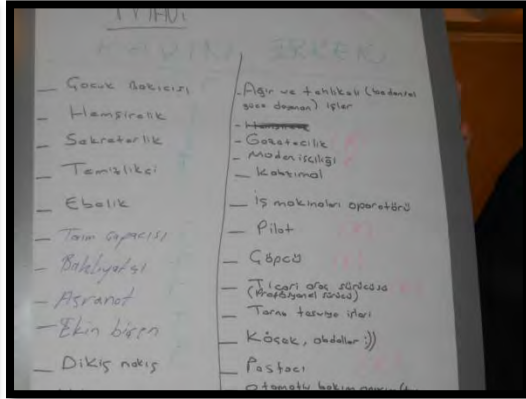 KADIN ERKEK
— Çocuk Bakıcısı
— Hemşirelik
— Sekreterlik
— Temizlikçi
— Ebelik
— Tarım çapacısı
— Bakliyatçı
— Aşçı
— Ekin biçen
— Dikiş nakış
- Ağır ve tehlikeli (bedensel
güce dayanan) işler
- Gazetecilik
- Maden işçiliği
— Kabzımal
— İş makinaları operatörü
— Pilot
— Çöpcü
— Ticari araç sürücüsü
(Profosyonel sürücü)
— Torna tesviye işleri
— Köçek, abdallar :))
— Pastacı